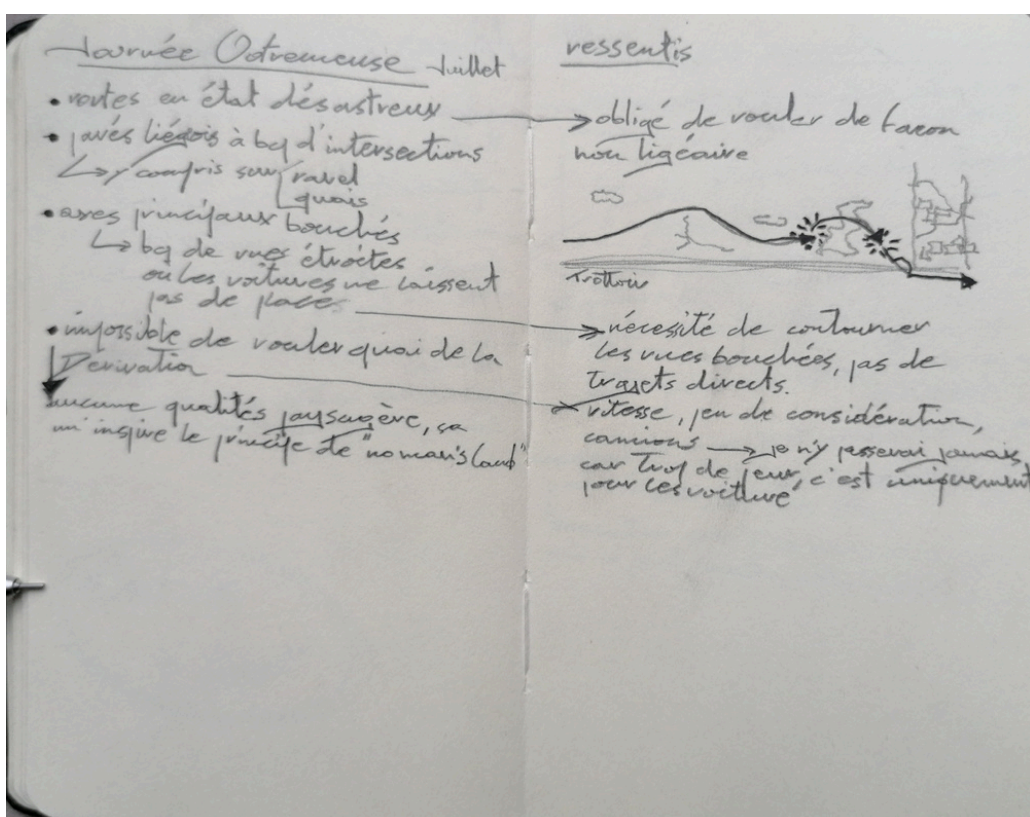 Journée Outremeuse Juillet
• routes en état désastreux
• pavés liégeois à bcq d'intersections
↳ y compris sur ravel
quais
• axes principaux bouchés
↳ bcq de rues étroites
où les voitures ne laissent
pas de place
• impossible de rouler quai de la
Dérivation
aucune qualités paysagère, ça
m'inspire le principe de "no man's land"
ressentis
obligé de rouler de facon
non ligéaire
Trottoir
nécessité de contourner
les rues bouchées, pas de
trajets directs.
vitesse, peu de considération,
camions → je n'y passerai jamais
car trop de peur, c'est uniquement
pour les voiture